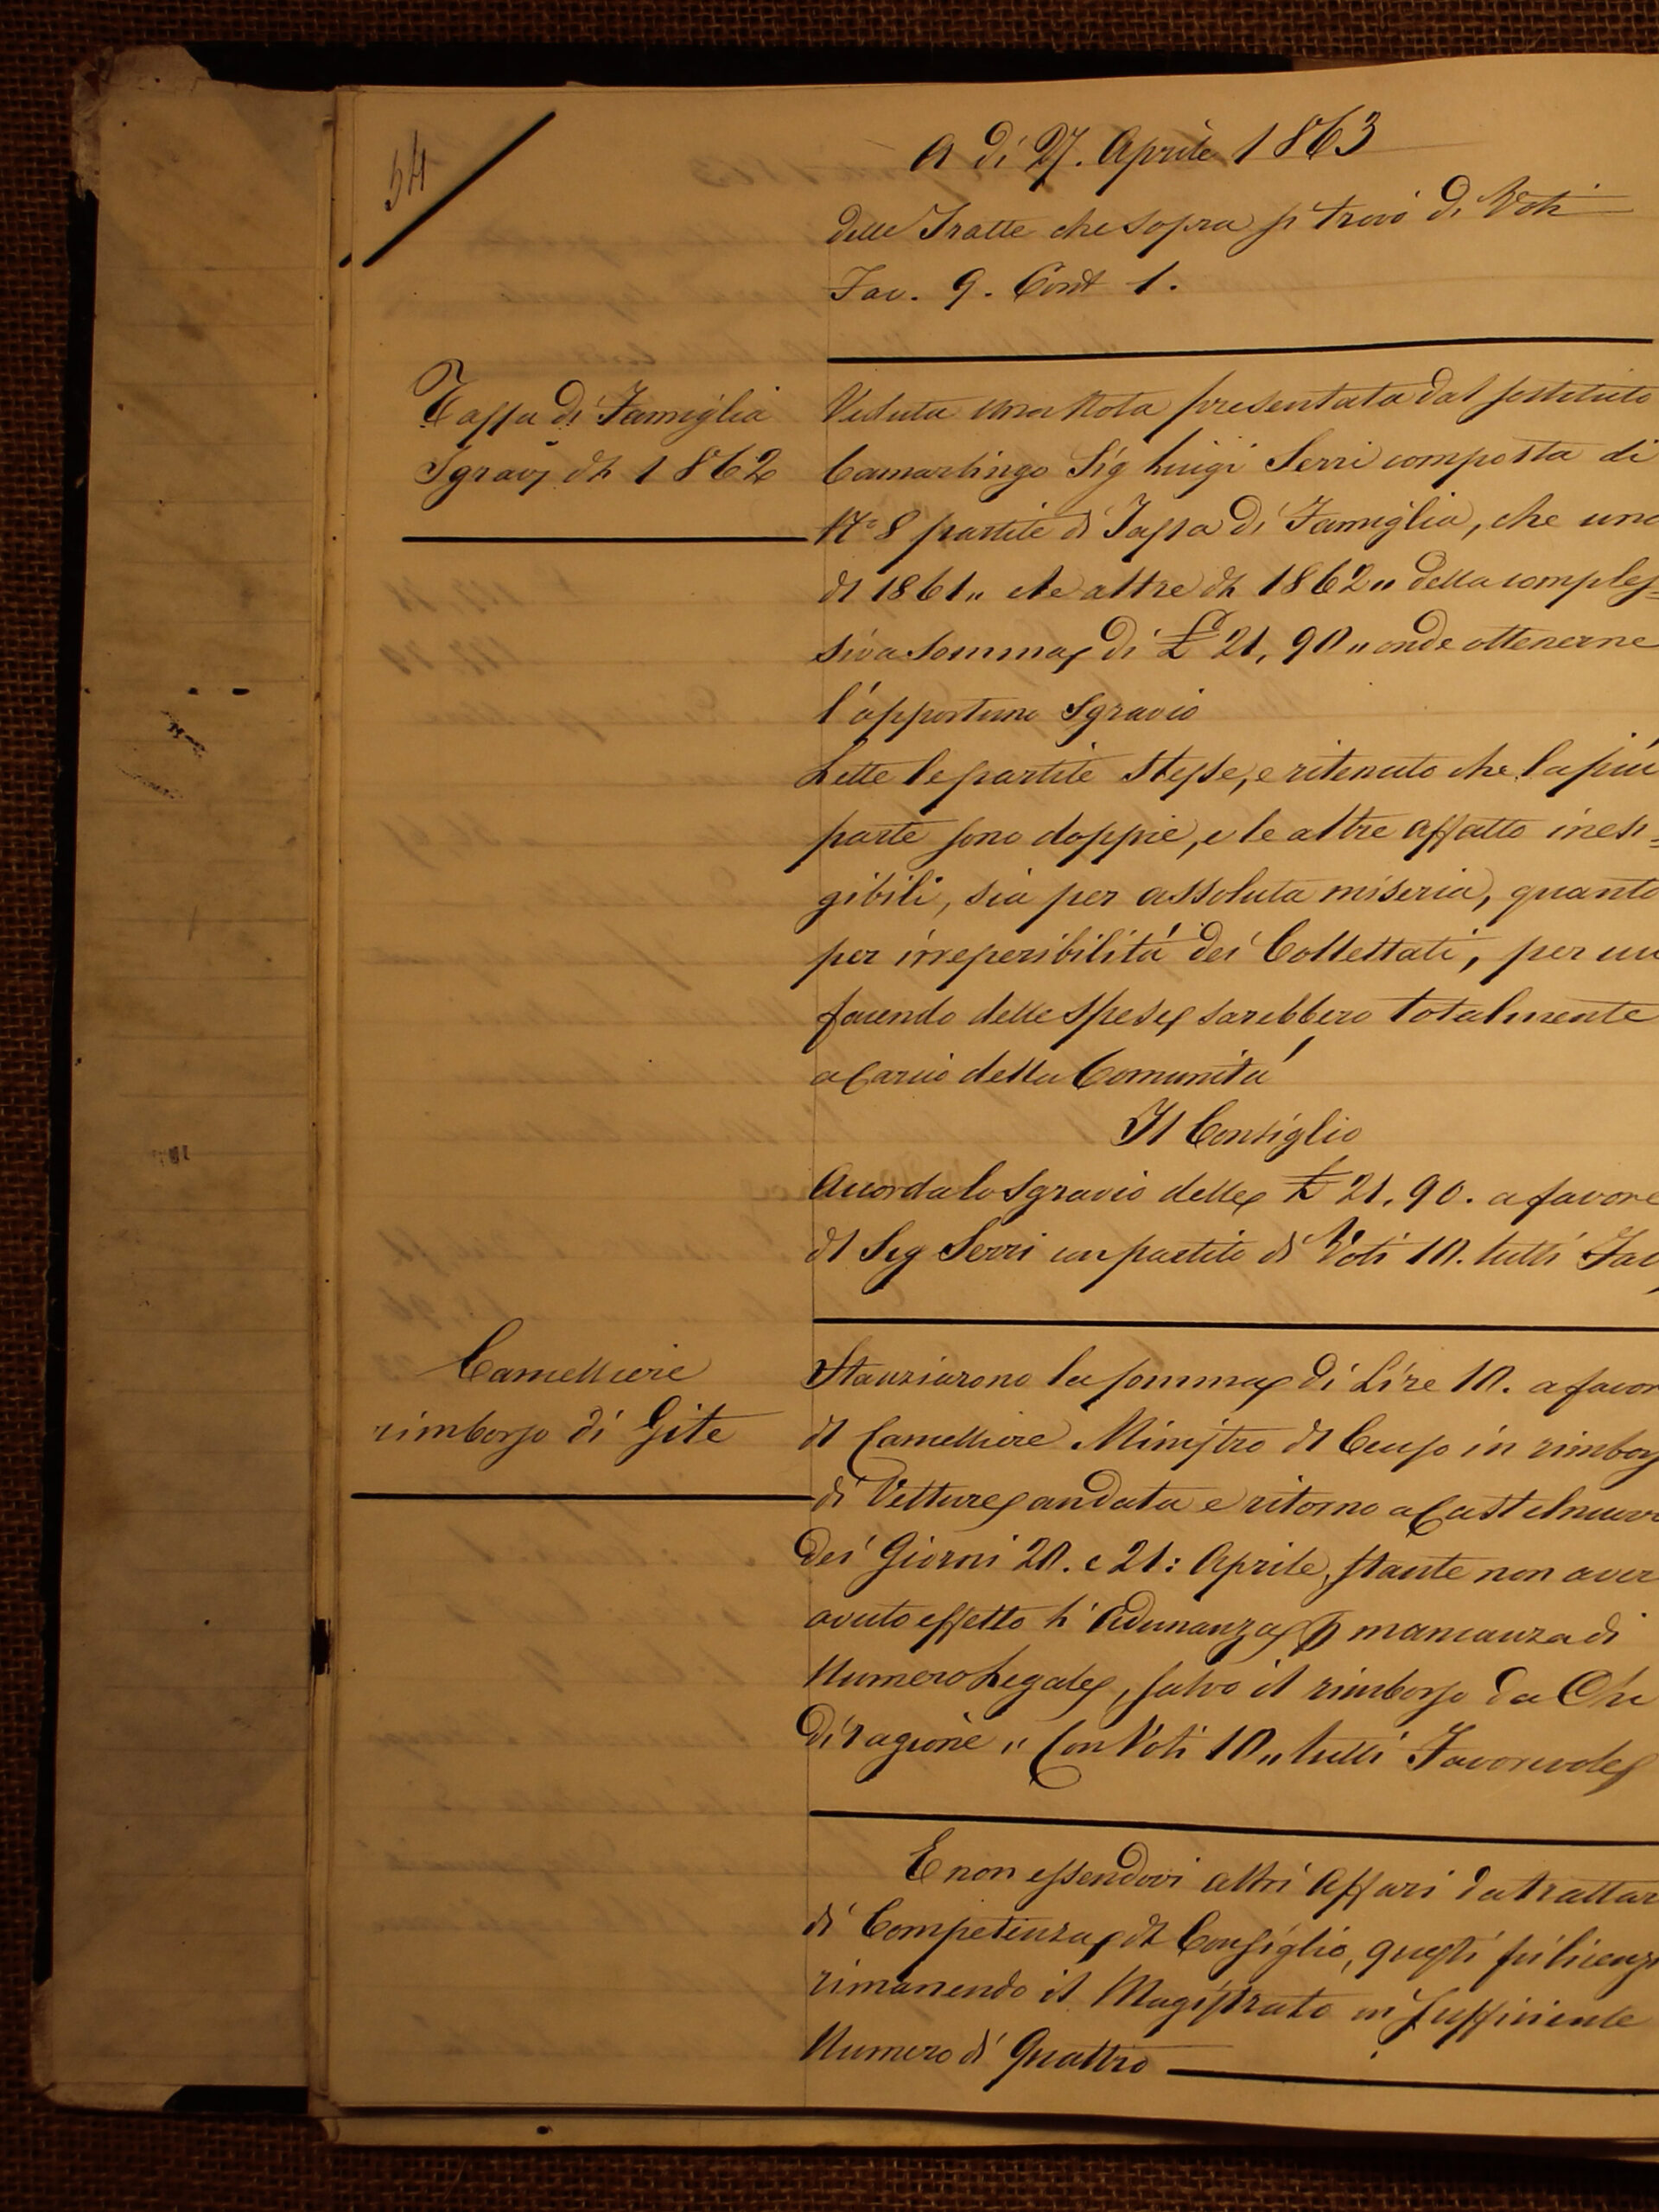 54
A dì 27. Aprile 1863
delle Tratte che sopra si trovò di Voti
Fav. 9. Cont 1.
Tassa di Famiglia
Sgravj dl 1862
Veduta una Nota presentata dal sostituto
Camarlingo Sig Luigi Serri composta di
N° 8 partite di Tassa di Famiglia, che una
dl 1861,, e le altre dl 1862,, della comples=
siva somma di £ 21, 90,, onde ottenerne
l'opportuno Sgravio
Lette le partite stesse, e ritenuto che la più
parte sono doppie, e le altre affatto inesi=
gibili, sia per assoluta miseria, quanto
per irreperibilitá dei Collettati, per cui
facendo delle spese sarebbero totalmente
a Carico della Comunitá
Il Consiglio
Accorda lo Sgravio delle £ 21. 90. a favore
dl Sig Serri con partito di Voti 10. tutti Fav
Cancelliere
rimborso di Gite
Stanziarono la somma di Lire 10. a favor
dl Cancelliere Ministro dl Censo in rimbors
di Vetture andata e ritorno a Castelnuov
dei Giorni 20. e 21: Aprile, stante non aver
avuto effetto l'Adunanza p mancanza di
Numero Legale, salvo il rimborso da Chi
di ragione,, Con Voti 10,, tutti Favorevoli
E non essendovi altri Affari da trattar
di Competenza dl Consiglio, questi fù licenzi
rimanendo il Magistrato in sufficiente
Numero di Quattro